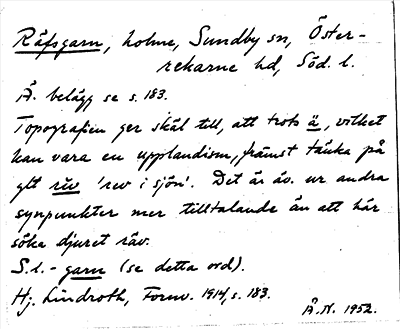 Räfsgarn, holme, Sundby sn, Öster-
rekarne hd, Söd. l.
Ä. belägg se s. 183.
Topografien ger skäl till, att trots ä, vilket
kan vara en upplandism, främst tänka på
gtt rĭv 'rev i sjön'. Det är äv. ur andra
synpunkter mer tilltalande än att här
söka djuret räv.
S.l. - garn (se detta ord).
Hj. Lindroth, Fornv. 1914, s. 183.
Å.N. 1952.